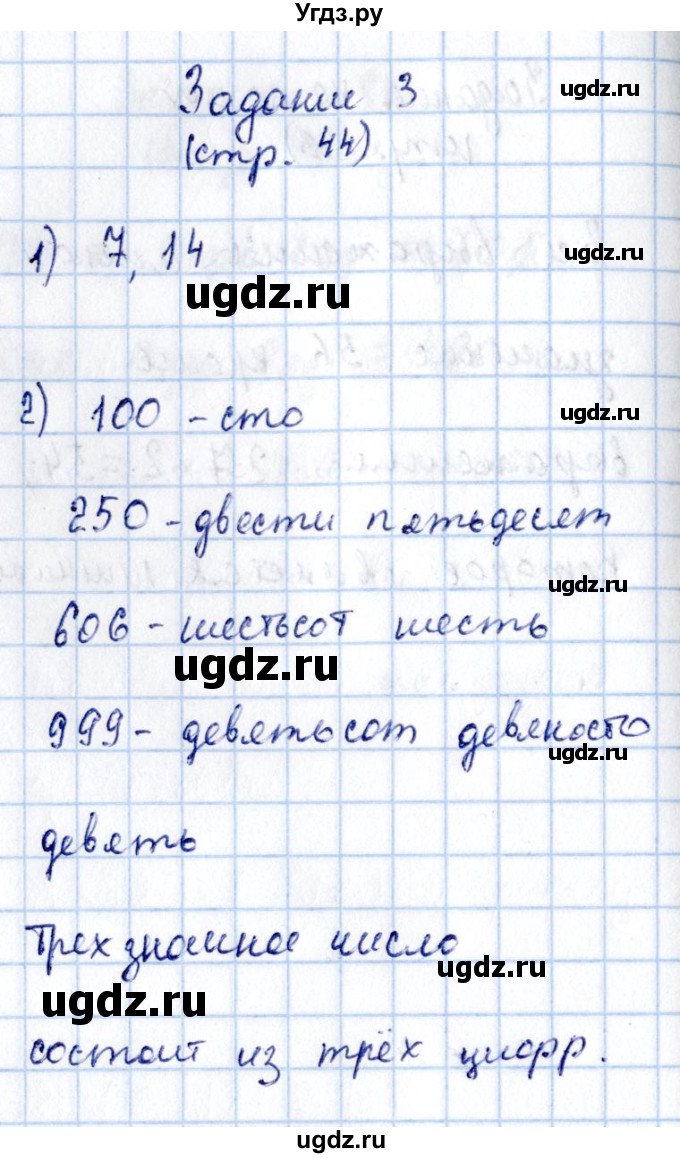 Угдз.ру
Задание 3
ugdz.ru
(стр. 44)
1) 7, 14
ugdz.ru
ugdz.ru
2) 100 - сто
ugdz.ru
250 - двести пятьдесят
ugdz.ru
606 - шестьсот шесть
ugdz.ru
999 - девятьсот девяносто
ugdz.ru
девять
Трехзначное число
ugdz.ru
ugdz.ru
состоит из трёх цифр.
ugdz.ru